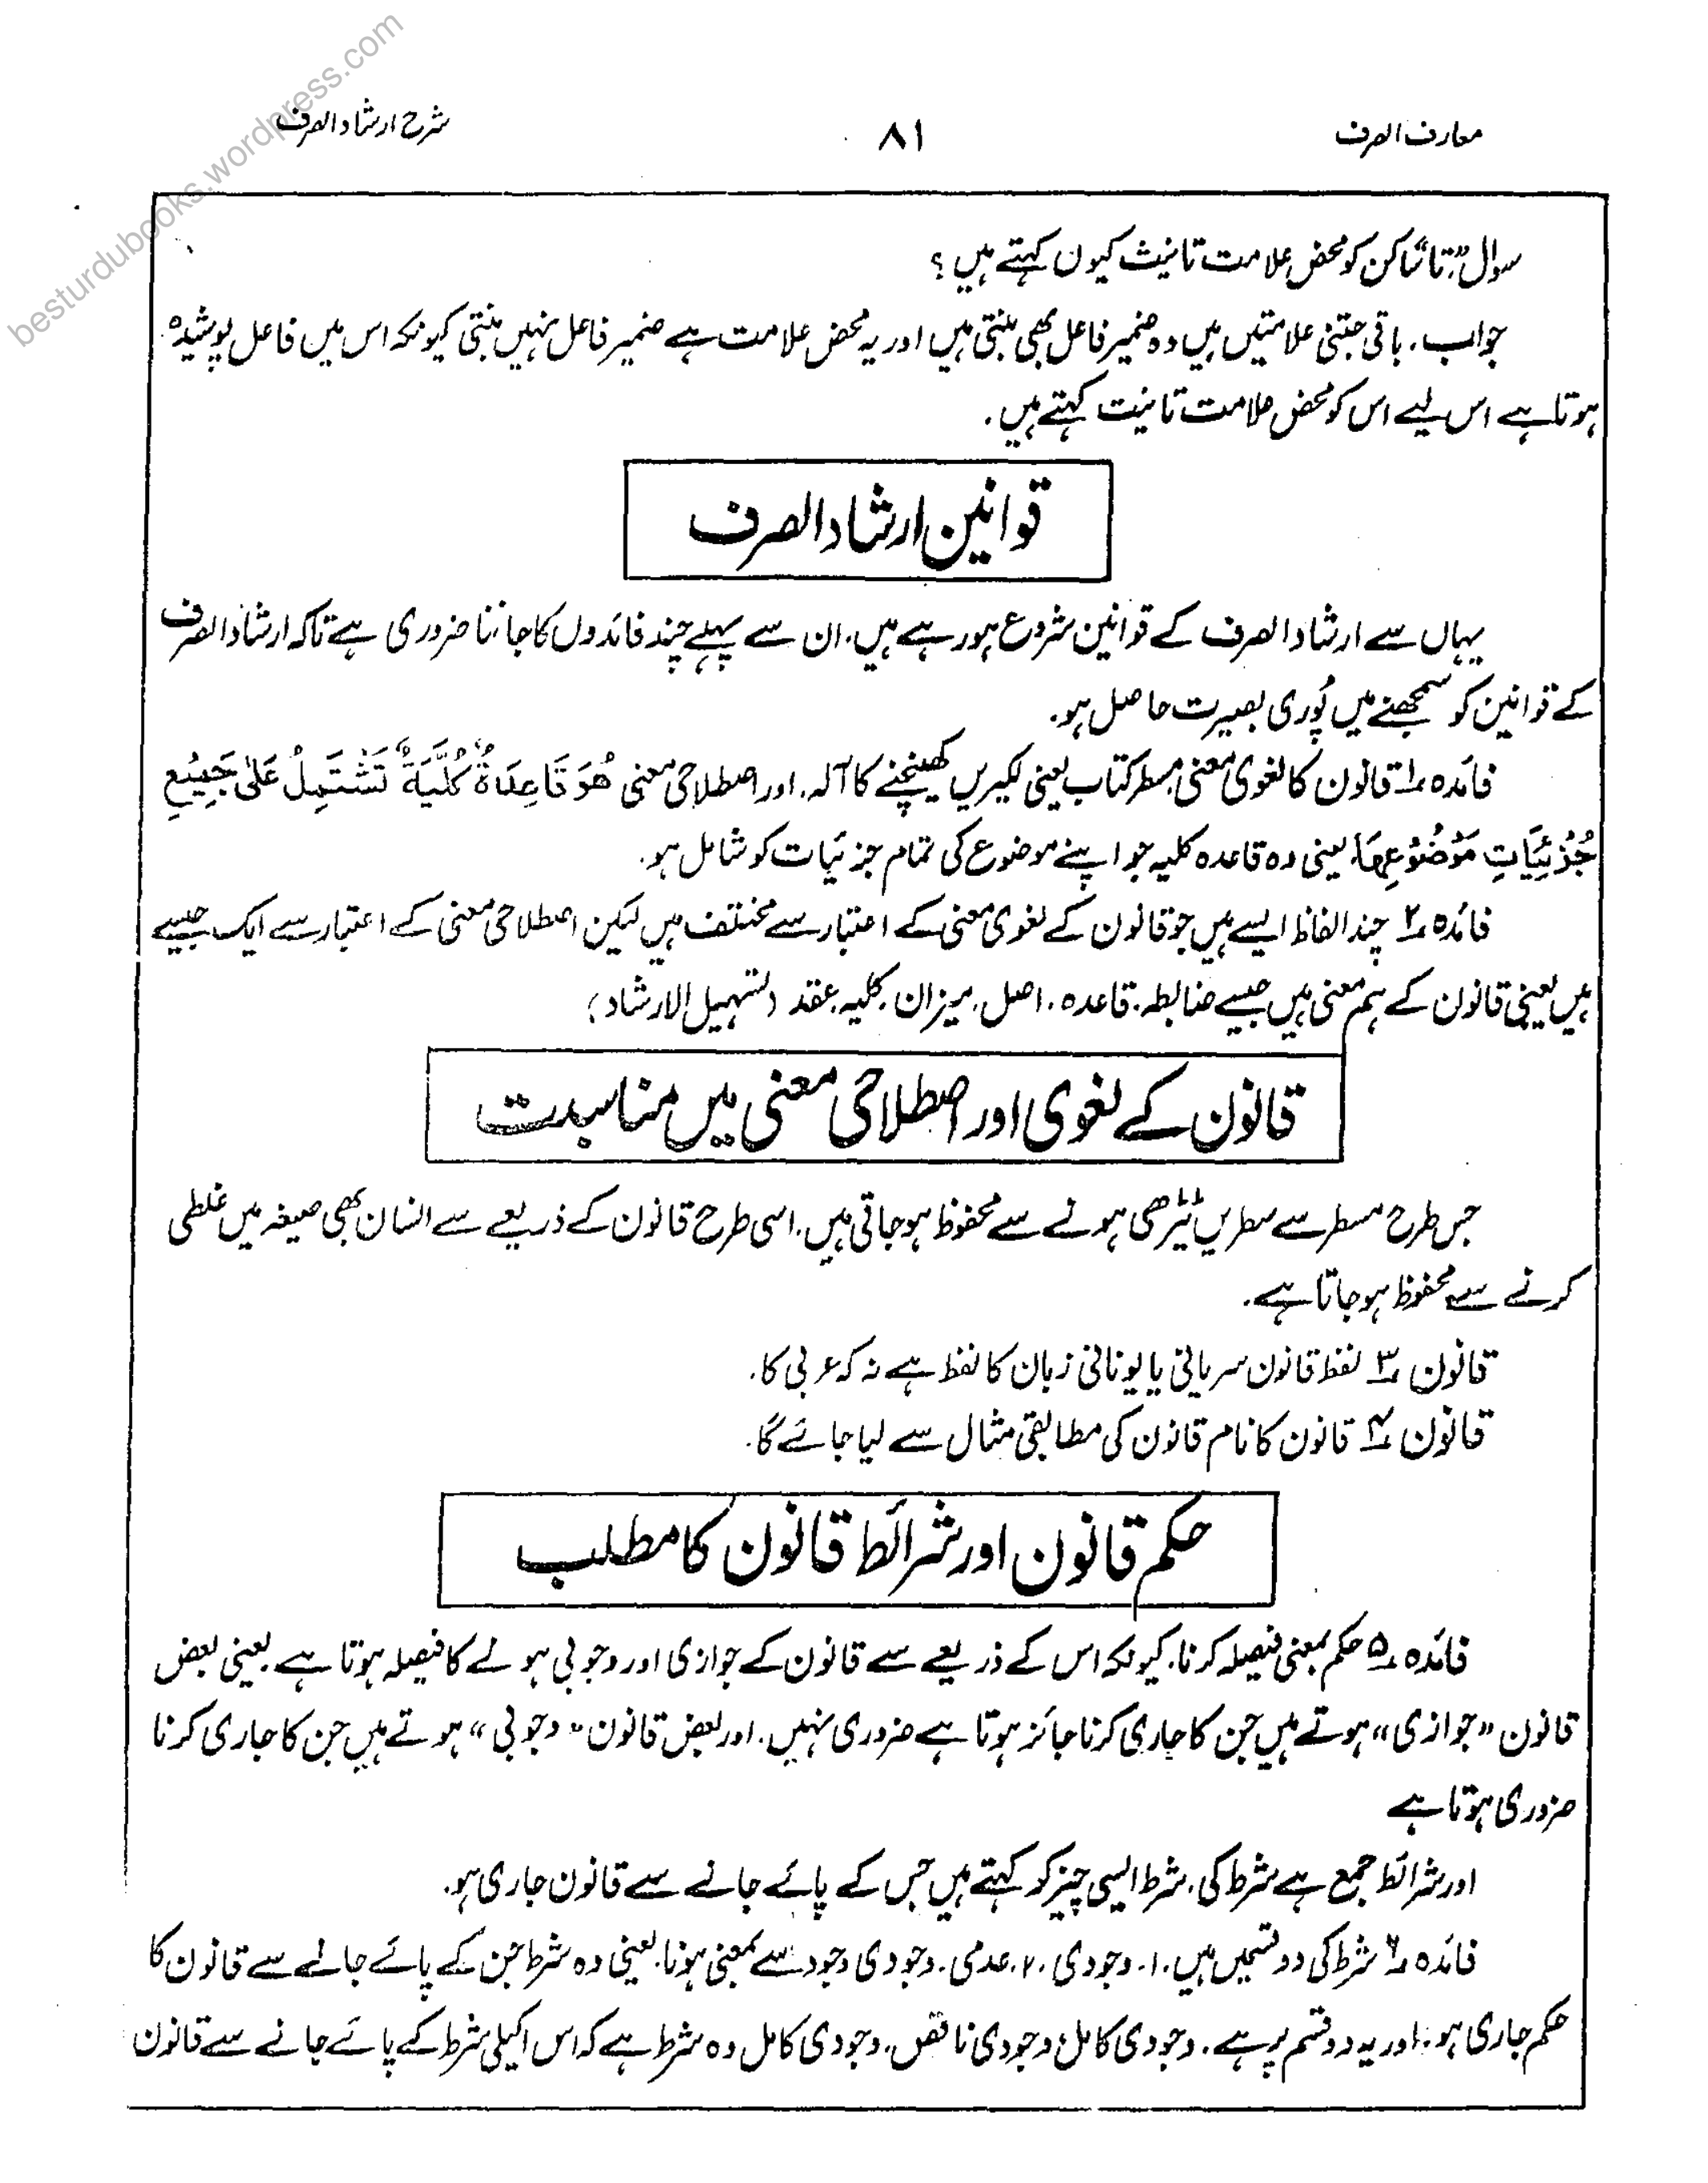 besturdubooks.wordpress.com
معارف الصرف ۸۱ شرح ارشاد الصرف
سوال: "تا" ساکن کو محض علامت تانیث کیوں کہتے ہیں ؟
جواب. باقی جتنی علامتیں ہیں وہ ضمیر فاعل بھی بنتی ہیں اور یہ محض علامت ہے ضمیر فاعل نہیں بنتی کیونکہ اس میں فاعل پوشیدہ
ہوتا ہے اس لیے اس کو محض علامت تانیث کہتے ہیں.
قوانین ارشاد الصرف
یہاں سے ارشاد الصرف کے قوانین شروع ہو رہے ہیں. ان سے پہلے چند فائدوں کا جاننا ضروری ہے تاکہ ارشاد الصرف
کے قوانین کو سمجھنے میں پُوری بصیرت حاصل ہو.
فائدہ ۱؎ قانون کا لغوی معنی مسطر کتاب یعنی لکیریں کھینچنے کا آلہ. اور اصطلاحی معنی هُوَ قَاعِدَةٌ كُلِّيَّةٌ تَشْتَمِلُ عَلىٰ جَمِيْعِ
جُزْئِيَّاتِ مَوْضُوْعِهَا. یعنی وہ قاعدہ کلیہ جو اپنے موضوع کی تمام جزئیات کو شامل ہو.
فائدہ ۲؎ چند الفاظ ایسے ہیں جو قانون کے لغوی معنی کے اعتبار سے مختلف ہیں لیکن اصطلاحی معنی کے اعتبار سے ایک جیسے
ہیں یعنی قانون کے ہم معنی ہیں جیسے ضابطہ. قاعدہ. اصل. میزان. کلیہ. عقد (تسہیل الارشاد)
قانون کے لغوی اور اصطلاحی معنی میں مناسبت
جس طرح مسطر سے سطریں ٹیڑھی ہونے سے محفوظ ہو جاتی ہیں. اسی طرح قانون کے ذریعے سے انسان بھی صیغہ میں غلطی
کرنے سے محفوظ ہو جاتا ہے.
قانون ۳؎ لفظ قانون سریانی یا یونانی زبان کا لفظ ہے نہ کہ عربی کا.
قانون ۴؎ قانون کا نام قانون کی مطابقی مثال سے لیا جائے گا.
حکم قانون اور شرائط قانون کا مطلب
فائدہ ۵؎ حکم بمعنی فیصلہ کرنا. کیونکہ اس کے ذریعے سے قانون کے جوازی اور وجوبی ہونے کا فیصلہ ہوتا ہے. یعنی بعض
قانون "جوازی" ہوتے ہیں جن کا جاری کرنا جائز ہوتا ہے ضروری نہیں. اور بعض قانون "وجوبی" ہوتے ہیں جن کا جاری کرنا
ضروری ہوتا ہے
اور شرائط جمع ہے شرط کی. شرط ایسی چیز کو کہتے ہیں جس کے پائے جانے سے قانون جاری ہو.
فائدہ ۶؎ شرط کی دو قسمیں ہیں. ۱. وجودی. ۲. عدمی. وجودی وجود سے بمعنی ہونا. یعنی وہ شرط جن کے پائے جانے سے قانون کا
حکم جاری ہو. اور یہ دو قسم پر ہے. وجودی کامل، وجودی ناقص. وجودی کامل وہ شرط ہے کہ اس اکیلی شرط کے پائے جانے سے قانون